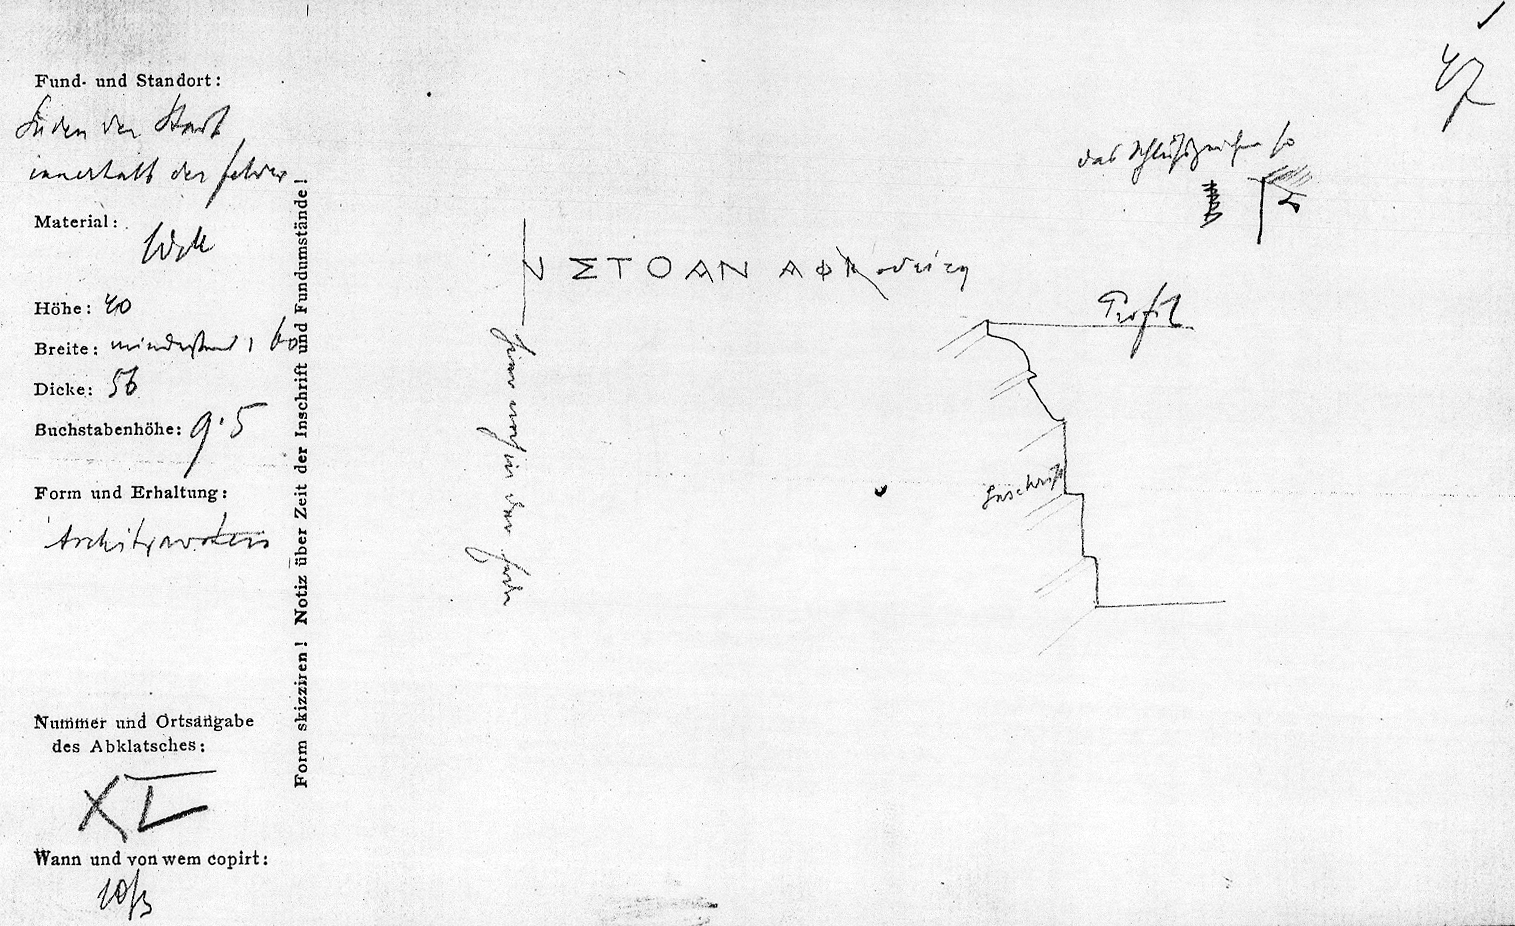 Fund- und Standort:
Süden der Stadt
innerhalb der Felder
Material:
Höhe: 40
Breite: mindestens 1 60
Dicke: 56
Buchstabenhöhe: 9.5
Form und Erhaltung:
Architravstein
Nummer und Ortsangabe
des Abklatsches:
XL
Wann und von wem copirt:
10/3
Form skizziren! Notiz über Zeit der Inschrift und Fundumstände!
47
das Schlußzeichen so
Ν ΣΤΟΑΝ ΑΦΡοδείτη
in der Erde
Profil
Inschrift